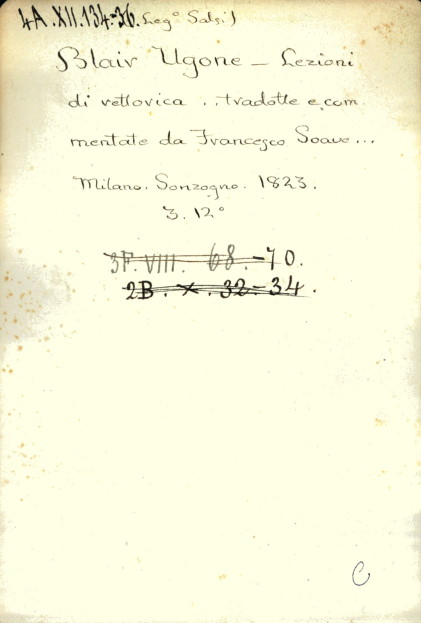 4A.XII.134-36. (Leg.° Salsi)
Blair Ugone – Lezioni
di rettorica .. tradotte e com
mentate da Francesco Soave...
Milano. Sonzogno. 1823.
3. 12°
3F. VIII. 68.-70.
2B. X. 32-34.
C